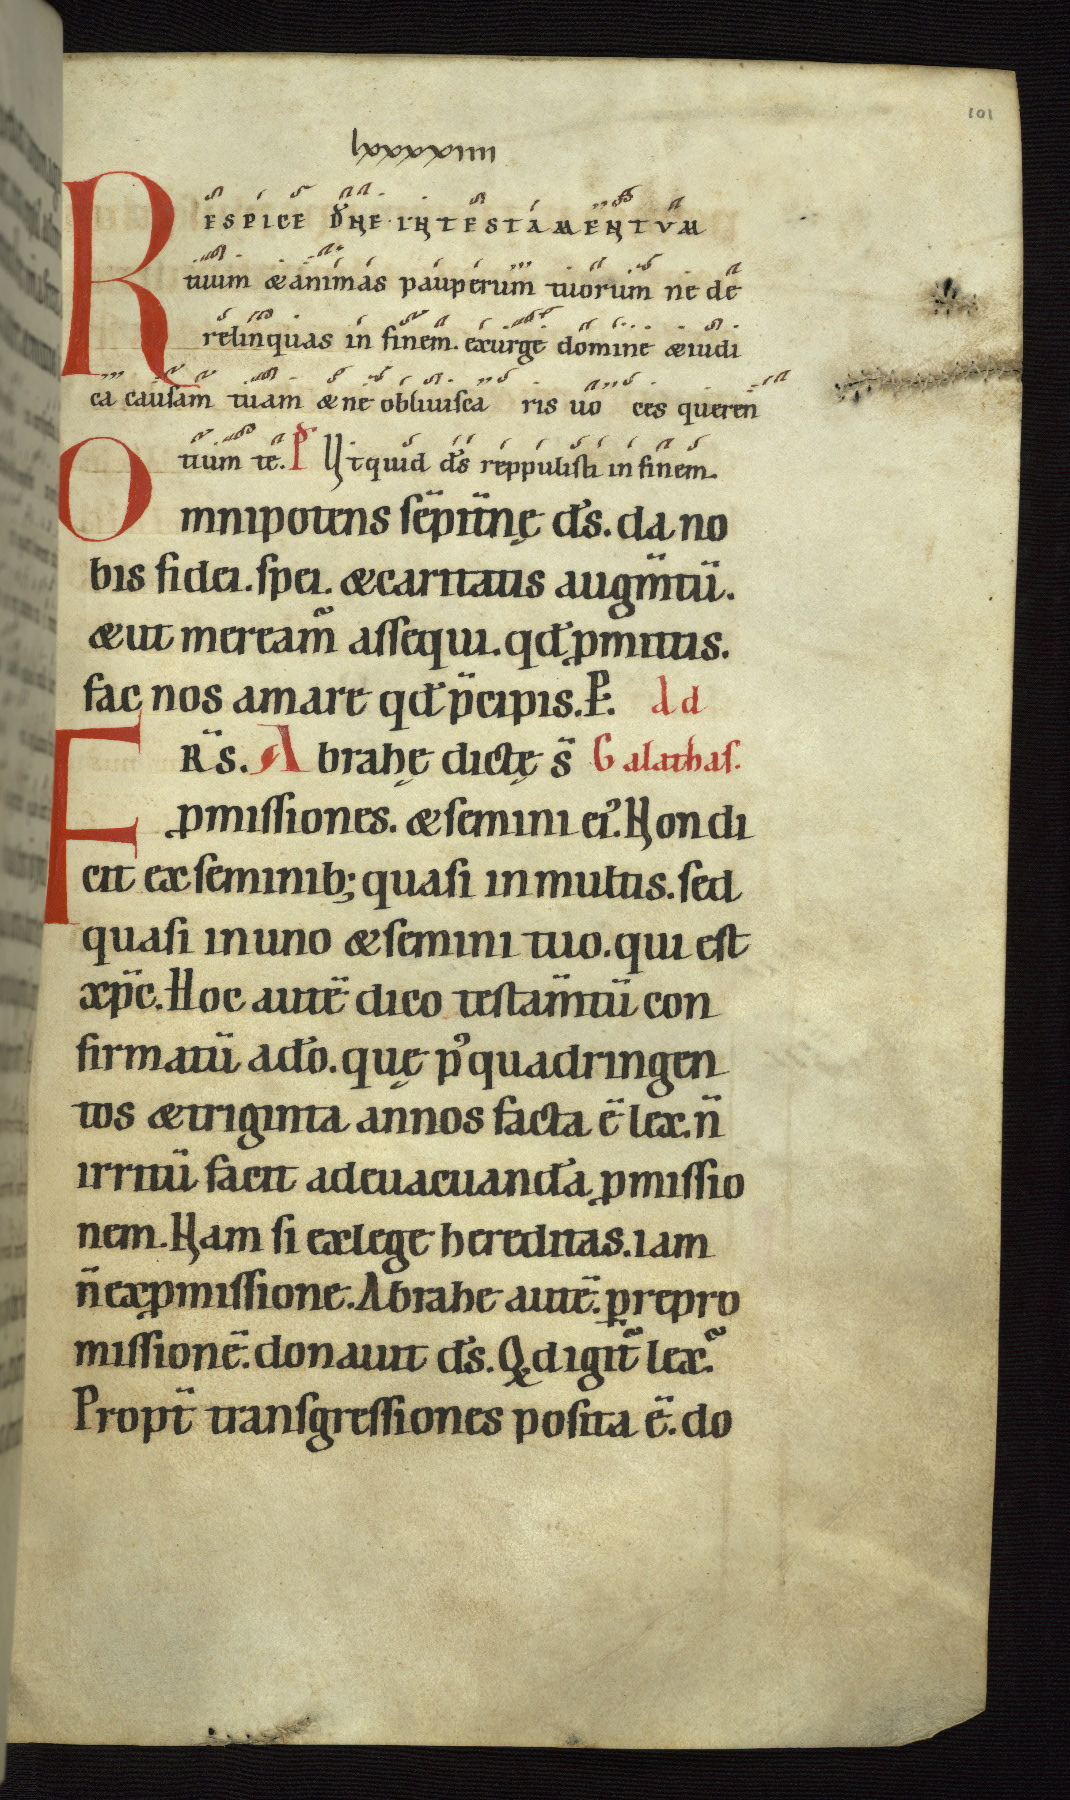 101
lxxxxiiii
RESPICE DN̄E INTESTAMENTUM
tuum & animas pauperum tuorum ne de
relinquas in finem. exurge domine & iudi
ca causam tuam & ne obliuisca ris uo ces queren
tium te. P̄ Ut quid d̄s reppulisti in finem.
Omnipotens sēpit̄nę d̄s. da no
bis fidei. spei. & caritatis augm̄tū.
& ut meream̃ assequi. qd̄ ꝓmittis.
fac nos amare qd̄ p̄cipis. P. Ad
FR̄S. Abrahę dictę s̄ Galathas.
ꝓmissiones. & semini ei᾽. Non di
cit ex seminib; quasi in multis. sed
quasi in uno & semini tuo. qui est
xp̄c. Hoc autē dico testam̄tū con
firmatū a dō. quę p᾽ quadringen
tos & triginta annos facta ē lex. n̄
irritū facit ad euacuandā ꝓmissio
nem. Nam si ex lege hereditas. iam
n̄ ex ꝓmissione. Abrahe autē. p̱ repro
missionē. donauit d̄s. Qd igit̃ lex.̃
Propt̄ transgressiones posita ē. do